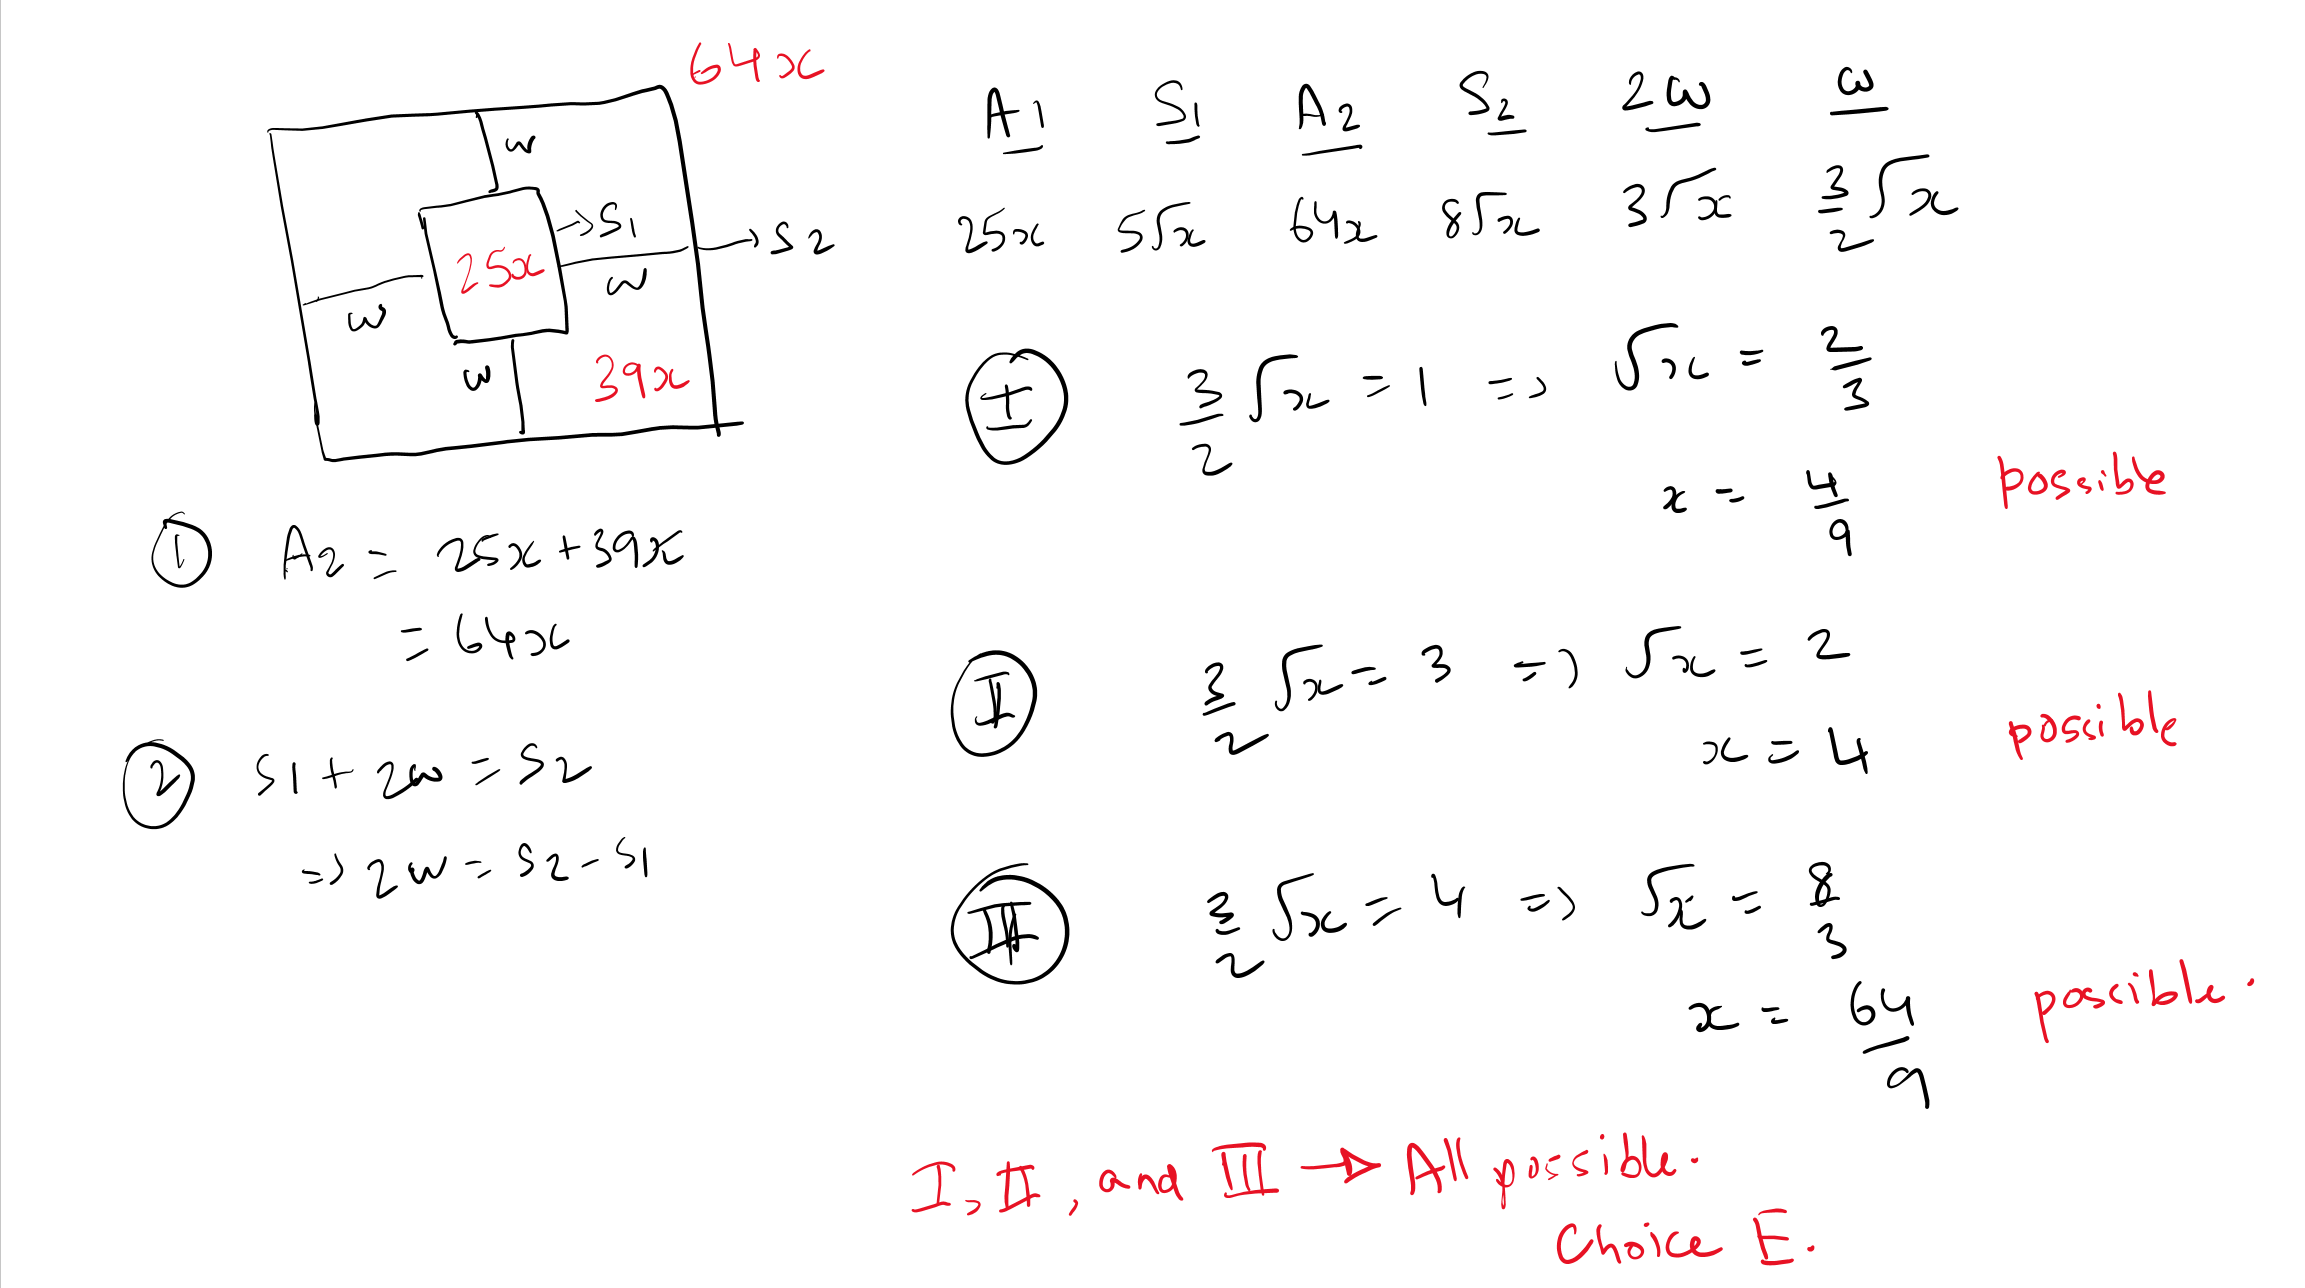 64x
w
25x
→S1
→S2
w
w
w
39x
① A2 = 25x+39x
= 64x
② S1 + 2w = S2
=> 2w = S2 - S1
A1 S1 A2 S2 2w w
25x 5√x 64x 8√x 3√x 3/2 √x
I 3/2 √x = 1 => √x = 2/3
x = 4/9 possible
II 3/2 √x = 3 => √x = 2
x = 4 possible
III 3/2 √x = 4 => √x = 8/3
x = 64/9 possible.
I, II, and III → All possible.
Choice E.